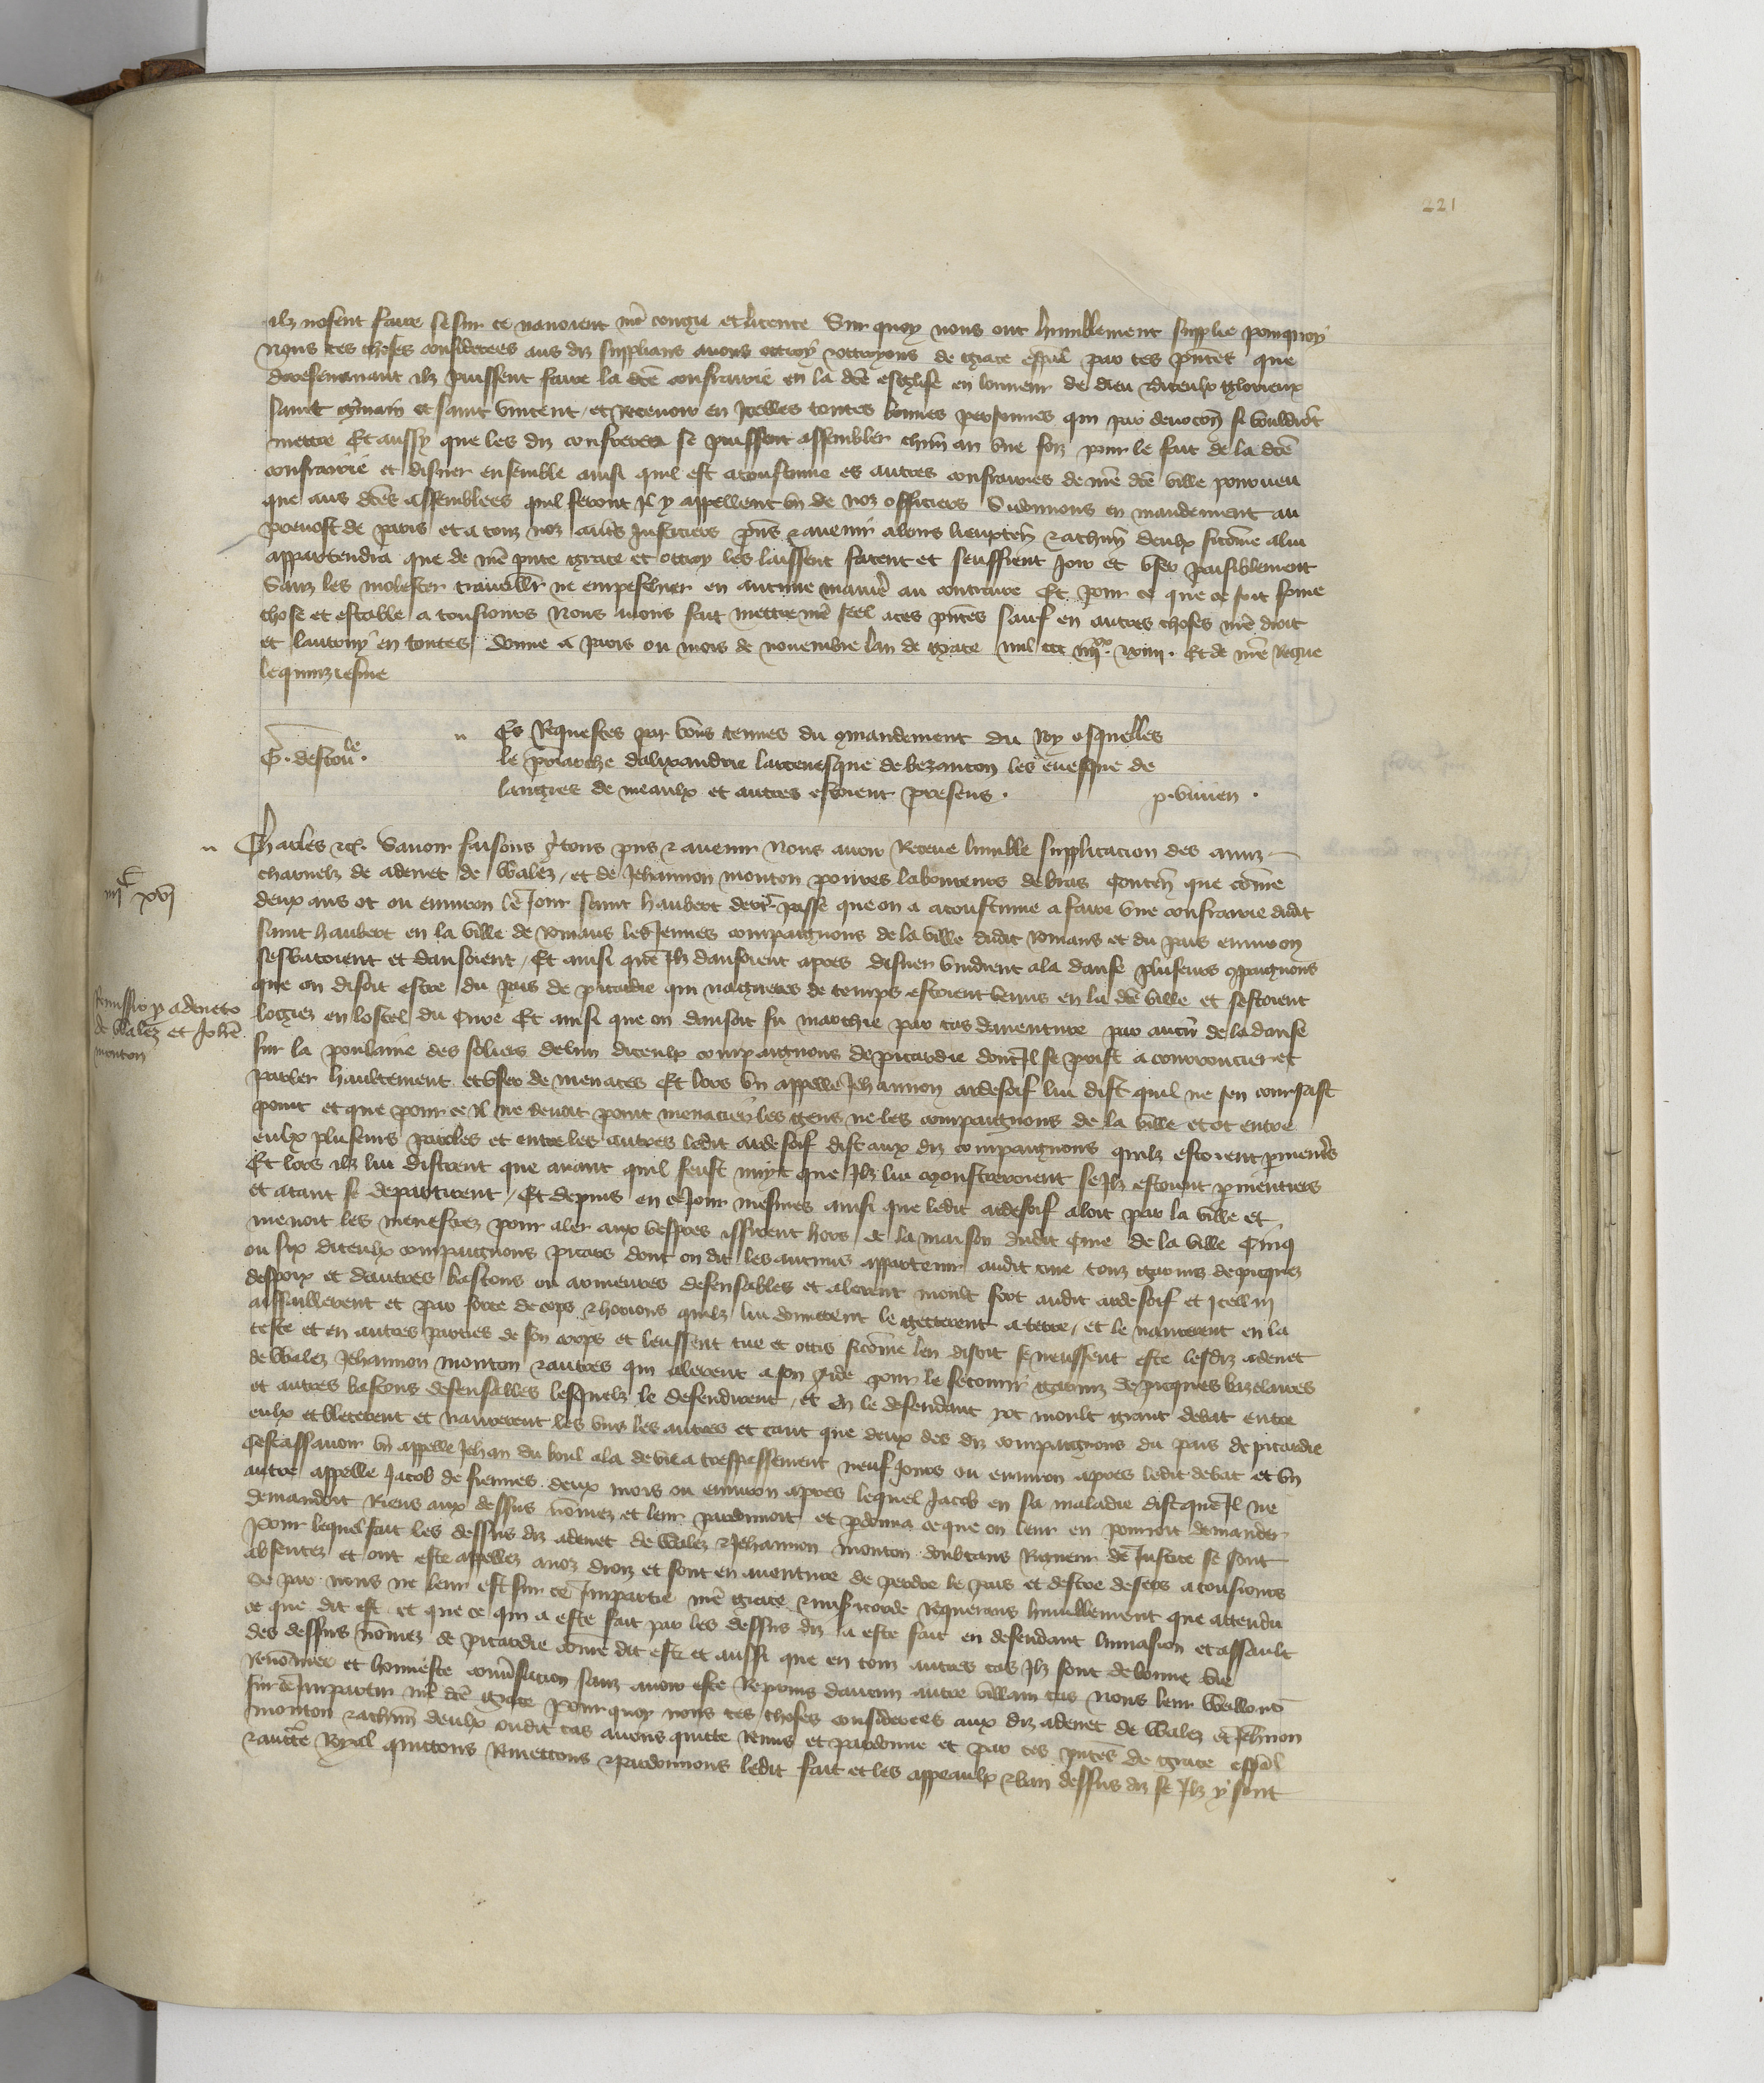 221
ilz nosent faire se sur ce nauoient nre congie et licence Sur quoy nous ont humblement supplie pourquoy
Nous ces choses considerees aus diz supplians auons ottroye ottroyons de grace espal par ces pntes que
doresenauant ilz puissent faire la dce confrairie en la dce esglise en lonneur de dieu diceulx glorieux
saint germain et saint vincent et receuoir en Icelles toutes bonnes personnes qui par deuocon si vouldront
mettre Et aussy que les diz confreres se puissent assembler chun an vne foiz pour le fait de la dce
confrairie et disner ensemble ainsi quil est acoustume es autres confrairies de nre dce ville pourueu
que aus dces assemblees quil feront Il y appellent vn de noz officiers Si donnons en mandement au
preuost de paris et a touz noz autres Justiciers pns & auenir a leurs lieuxten & a chun deulx sicome a lui
appartendra que de nre pnte grace et ottroy les laissent facent et seuffrent Joir et vser paisiblement
Sanz les molester trauaillr ne empeschier en aucune manie au contraire Et pour ce que ce soit ferme
chose et estable a tousiours Nous auons fait mettre nre seel a ces pntes Sauf en autres choses nre droit
et lautruy en toutes Donne a paris ou mois de nouembre lan de grace mil ccc iiijxx xiiij. Et de nre Regne
le quinziesme
Es Requestes par vous tenues du gmandement du Roy esquelles
G. destoule.
le patriarche dalixandrie larceuesque de bezancon les euesque de
langres de meaulx et autres estoient presens.
p. viuien.
Charles &c. Sauoir faisons a tous pns & auenir Nous auoir Receue lumble supplicacion des amiz
charnelz de adenet de Walez, et de Jehannon monton poures laboureurs de bras Conten que come
iiijc xvj
deux ans ot ou enuiron le Jour saint haubert derr passe que on a acoustume a faire vne confrairie dudit
saint haubert en la ville de Romans les Jeunes compaignons de la ville dudit Romans et du pais enuiron
sesbatoient et dansoient, Et ainsi que Ilz dansoient apres disner vindrent a la danse pluseurs gpaignons
que on disoit estre du pais de picardie qui nagueres de temps estoient venus en la dce ville et sestoient
Remissio p adeneto
de Walez et Johe
monton
logiez en lostel du Cure Et ainsi que on dansoit fu marchie par cas dauenture par aucu de la danse
sur la poulaine des soliers de lun diceulx compaignons de picardie dont Il se prist a courroucier et
parler haultement et vser de menaces Et lors vn appelle Jehannon ardesoif lui dist quil ne sen courrsast
point et que pour ce il ne deuoit point menacier les gens ne les compaignons de la ville et ot entre
eulx pluseurs paroles et entre les autres ledit ardesoif dist aux diz compaignons quilz estoient pmentrs
Et lors ilz lui distrent que auant quil feust nuyt que Ilz lui monstreroient se Ilz estoient pmentiers
et atant se departirent, Et depuis en ce Jour mesmes ainsi que ledit ardesoif aloit par la ville et
menoit les menestrez pour aler aux vespres issirent hors de la maison dudit Cure de la ville Cinq
ou six diceulx compaignons picars dont on dit les aucuns appartenir audit cure touz garnis de picques
despoix et dautres bastons ou armeures defensables et alerent moult fort audit ardesoif et Icellui
assaillerent et par force de cops & horions quilz lui donnerent le getterent a terre, et le naurerent en la
teste et en autres parties de son corps et leussent tue et occis sicome len disoit se neussent este lesdiz adenet
de Walez Jehannon monton & autres qui alerent a son aide pour le secourir garniz de picques bazelaires
et autres bastons defensables lesquelz le defendirent, et en le defendant not moult grant debat entre
eulx et blecerent et naurerent les vns les autres et tant que deux des diz compaignons du pais de picardie
Cestassauoir vn appelle Jehan du boul ala de vie a trespassement neuf Jours ou enuiron apres ledit debat et vn
autre appelle Jacob de fiennes deux mois ou enuiron apres lequel Jacob en sa maladie dist que Il ne
demandoit Riens aux dessus nomez et leur pardonnoit et pdonna ce que on leur en pourroit demander
Pour lequel fait les dessus diz adenet de Walez & Jehannon monton doubtans Rigueur de Justice se sont
absentez et ont este appellez a noz droiz et sont en auenture de perdre le pais et destre desers a tousiours
Se par nous ne leur est sur ce Impartie nre grace & misicorde Requerans humblement que attendu
ce que dit est et que ce qui a este fait par les dessus diz a este fait en defendant linuasion et assault
des dessus nomez de picardie come dit est et aussi que en touz autres cas Ilz sont de bonne vie
Renomee et honneste conusacion sanz auoir este Repriins daucun autre villain cas nous leur Weillons
sur ce Impartir nre dce grace Pour quoy nous ces choses considerees aux diz adenet de Walez et Jehnon
monton & a chun deulx ou dit cas auons quicte Remis et pardonne et par ces pntes de grace espal
& auctte Royal quictons Remettons & pardonnons ledit fait et les appeaulx & ban dessus diz se Ilz y sont